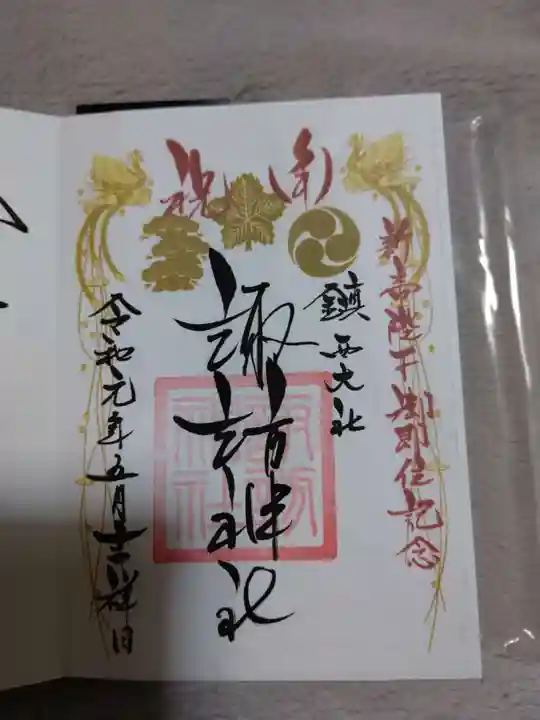 奉祝
新帝陛下御即位記念
鎮西大社
諏訪神社
令和元年五月吉祥日
諏訪神社